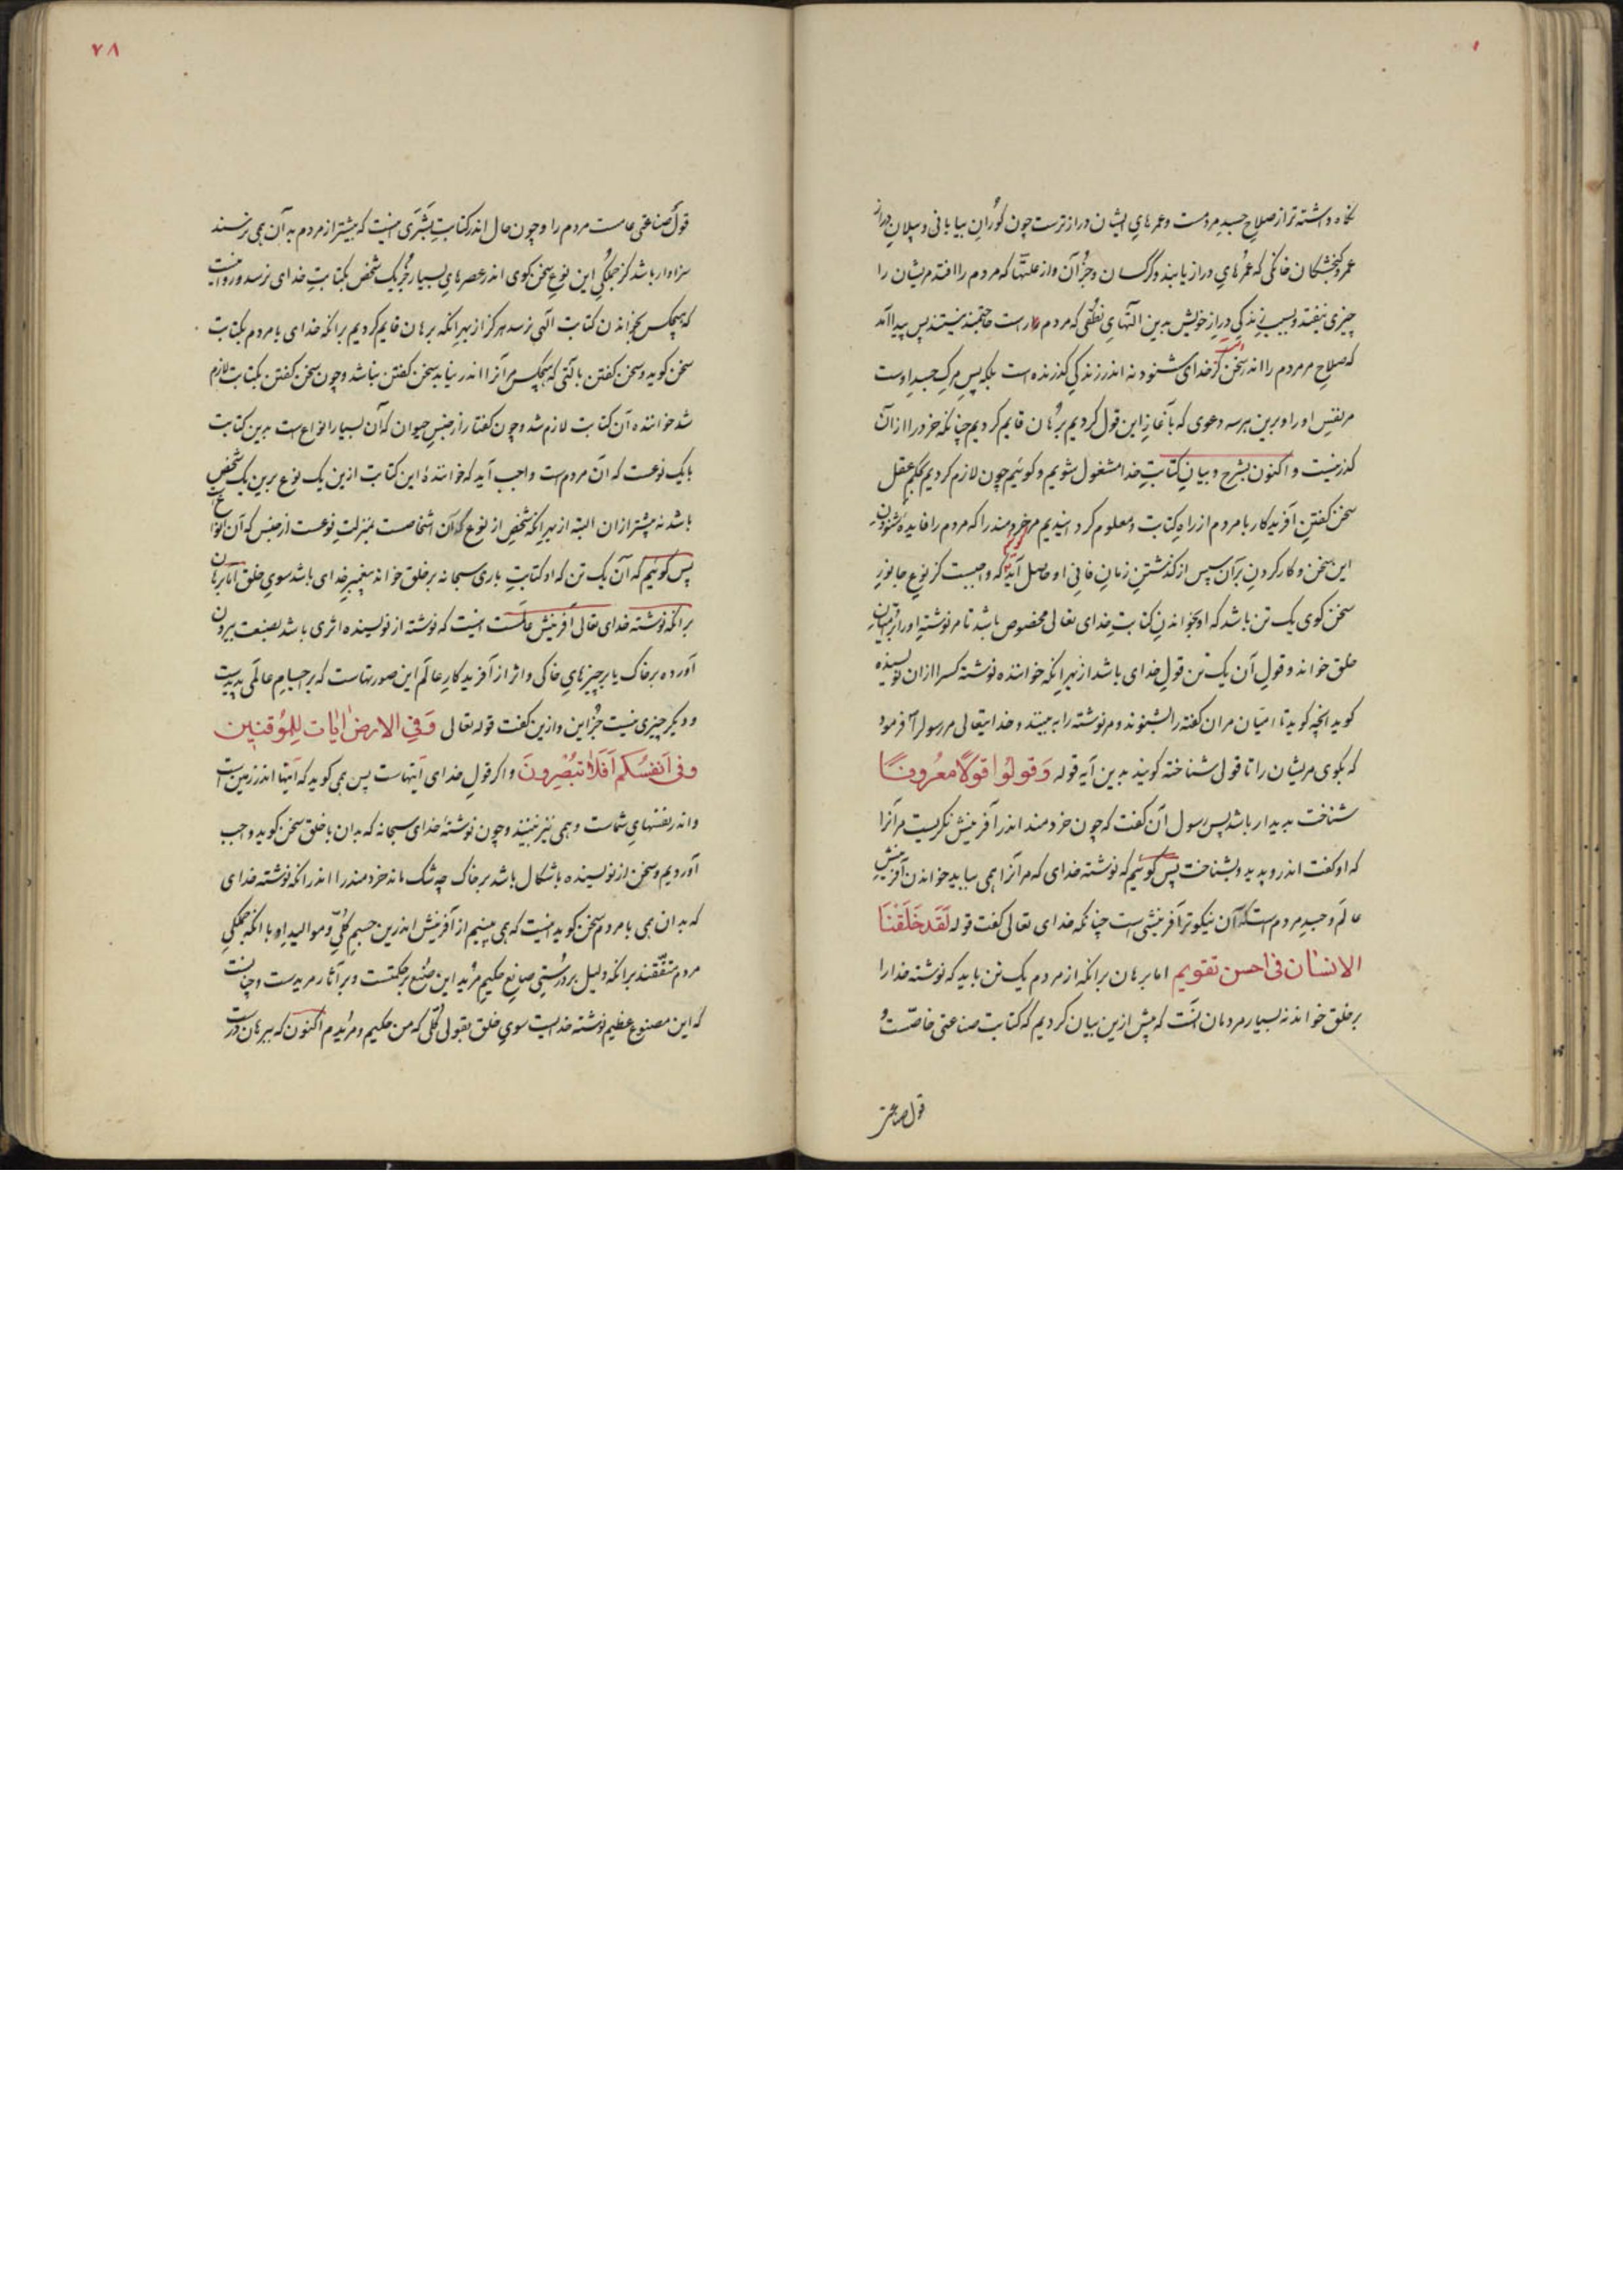 نکاه داشته تر از صلاح جسد مردمست و عمرهای ایشان درازترست چون کوران بیابانی و پیلان دراز
عمر و کنجشکان خانکی که عمرهای دراز یابند و کرکسان و جز آن و از علتها که مردم را افتد مریشان را
چیزی نیفتد و بسبب زندکی دراز خویش بدین آلتهای نطقی که مردم راست حاجتمند نیستند پس پیدا آمد
که صلاح مر مردم را اندر سخن کز خدای شنود نه اندر زندکی کذرنده است بلکه پس مرک جسد اوست
مر نفس او را و برین هر سه دعوی که بآغاز این قول کردیم برهان قایم کردیم چنانکه خرد را از آن
کذر نیست و اکنون بشرح و بیان کتابت خدا مشغول شویم و کوئیم چون لازم کردیم بحکم عقل
سخن کفتن آفریدکار با مردم از راه کتابت و معلوم کردانیدیم مر خردمند را که مردم را فایده شنودن
این سخن و کار کردن بر آن سپس از کذشتن زمان فانی او حاصل آید که واجبست کز نوع جانور
سخن کوی یک تن باشد که او بخواندن کتابت خدای تعالی مخصوص باشد تا مر نوشته او را بر
خلق خواند و قول آن یک تن قول خدای باشد از بهر آنکه خواننده نوشته کسرا از آن نویسنده
کوید آنچه کوید تا امیان مر آن کفته را بشنوند و مر نوشته را به بینند و خدایتعالی مر رسول را فرمود
که بکوی مریشان را تا قولی شناخته کویند بدین آیه قوله وَقولوا قولًا معروفًا
شناخت بدیدار باشد پس رسول آن کفت که چون خردمند اندر آفرینش نکریست مر آنرا
که او کفت اندرو پدید و بشناخت پس کوئیم که نوشته خدای که مر آنرا همی بباید خواندن آفرینش
عالم و جسد مردم است که آن نیکوتر آفرینشی است چنانکه خدای تعالی کفت قوله لَقَد خَلَقنَا
الانسٰان فی احسن تقویم اما برهان بر آنکه از مردم یک تن باید که نوشته خدا را
بر خلق خواند نه بسیار مردمان آنست که پیش ازین بیان کردیم که کتابت صناعتی خاصست و
قول صناعتی
٧٨
قول صناعتی عامست مردم را و چون حال اندر کتابت بَشَری اینست که بیشتر از مردم به آن همی نرسند
سزاوار باشد کز جملکی این نوع سخن کوی اندر عصرهای بسیار جز یک شخص بکتابت خدای نرسد و روا نیست
که هیچکس بخواندن کتابت الهی نرسد هرکز از بهر آنکه برهان قایم کردیم بر آنکه خدای با مردم بکتابت
سخن کوید و سخن کفتن با کسی که هیچکس مر آنرا اندر نیابد سخن کفتن نباشد و چون سخن کفتن بکتابت لازم
شد خواننده آن کتابت لازم شد و چون کفتار از جنس حیوان که آن بسیار انواع است بدین کتابت
با یک نوعست که آن مردم است واجب آید که خواننده این کتابت ازین یک نوع برین یک شخص
باشد نه بیشتر از آن البته از بهر آنکه شخص از نوع که آن اشخاصست بمنزلت نوعست از جنس که آن انواع
پس کوئیم که آن یک تن که او کتابت باری سبحانه بر خلق خواند پیغمبر خدای باشد سوی خلق اما برهان
بر آنکه نوشته خدای تعالی آفرینش عالمست اینست که نوشته از نویسنده اثری باشد بصنعت بیرون
آورده بر خاک یا بر چیزهای خاکی و اثر از آفریدکار عالم این صورتهاست که بر اجسام عالمی پدیدست
و دیکر چیزی نیست جز این و ازین کفت قوله تعالی وَفی الارض اٰیات لِلمُوقنین
وفی اَنفسکم اَفَلا تبُصِرونَ و اکر قول خدای آیتهاست پس همی کوید که آیتها اندر زمین است
و اندر نفسهای شماست و همی نیز نبینند و چون نوشتهٔ خدای سبحانه که بدان با خلق سخن کوید واجب
آوردیم و سخن از نویسنده باشکال باشد بر خاک چه شک ماند خردمند را اندر آنکه نوشته خدای
که بدان همی با مردم سخن کوید اینست که همی بینیم از آفرینش اندرین جسم کلی و موالید او با آنکه جملکی
مردم متفقند بر آنکه دلیل بر درستی صانع حکیم مرید این صنع پر حکمتست و بر آثار مریدست و چنانست
که این مصنوع عظیم نوشته خدایست سوی خلق بقولی کلی که من حکیم و مریدم اکنون که ببرهان درست